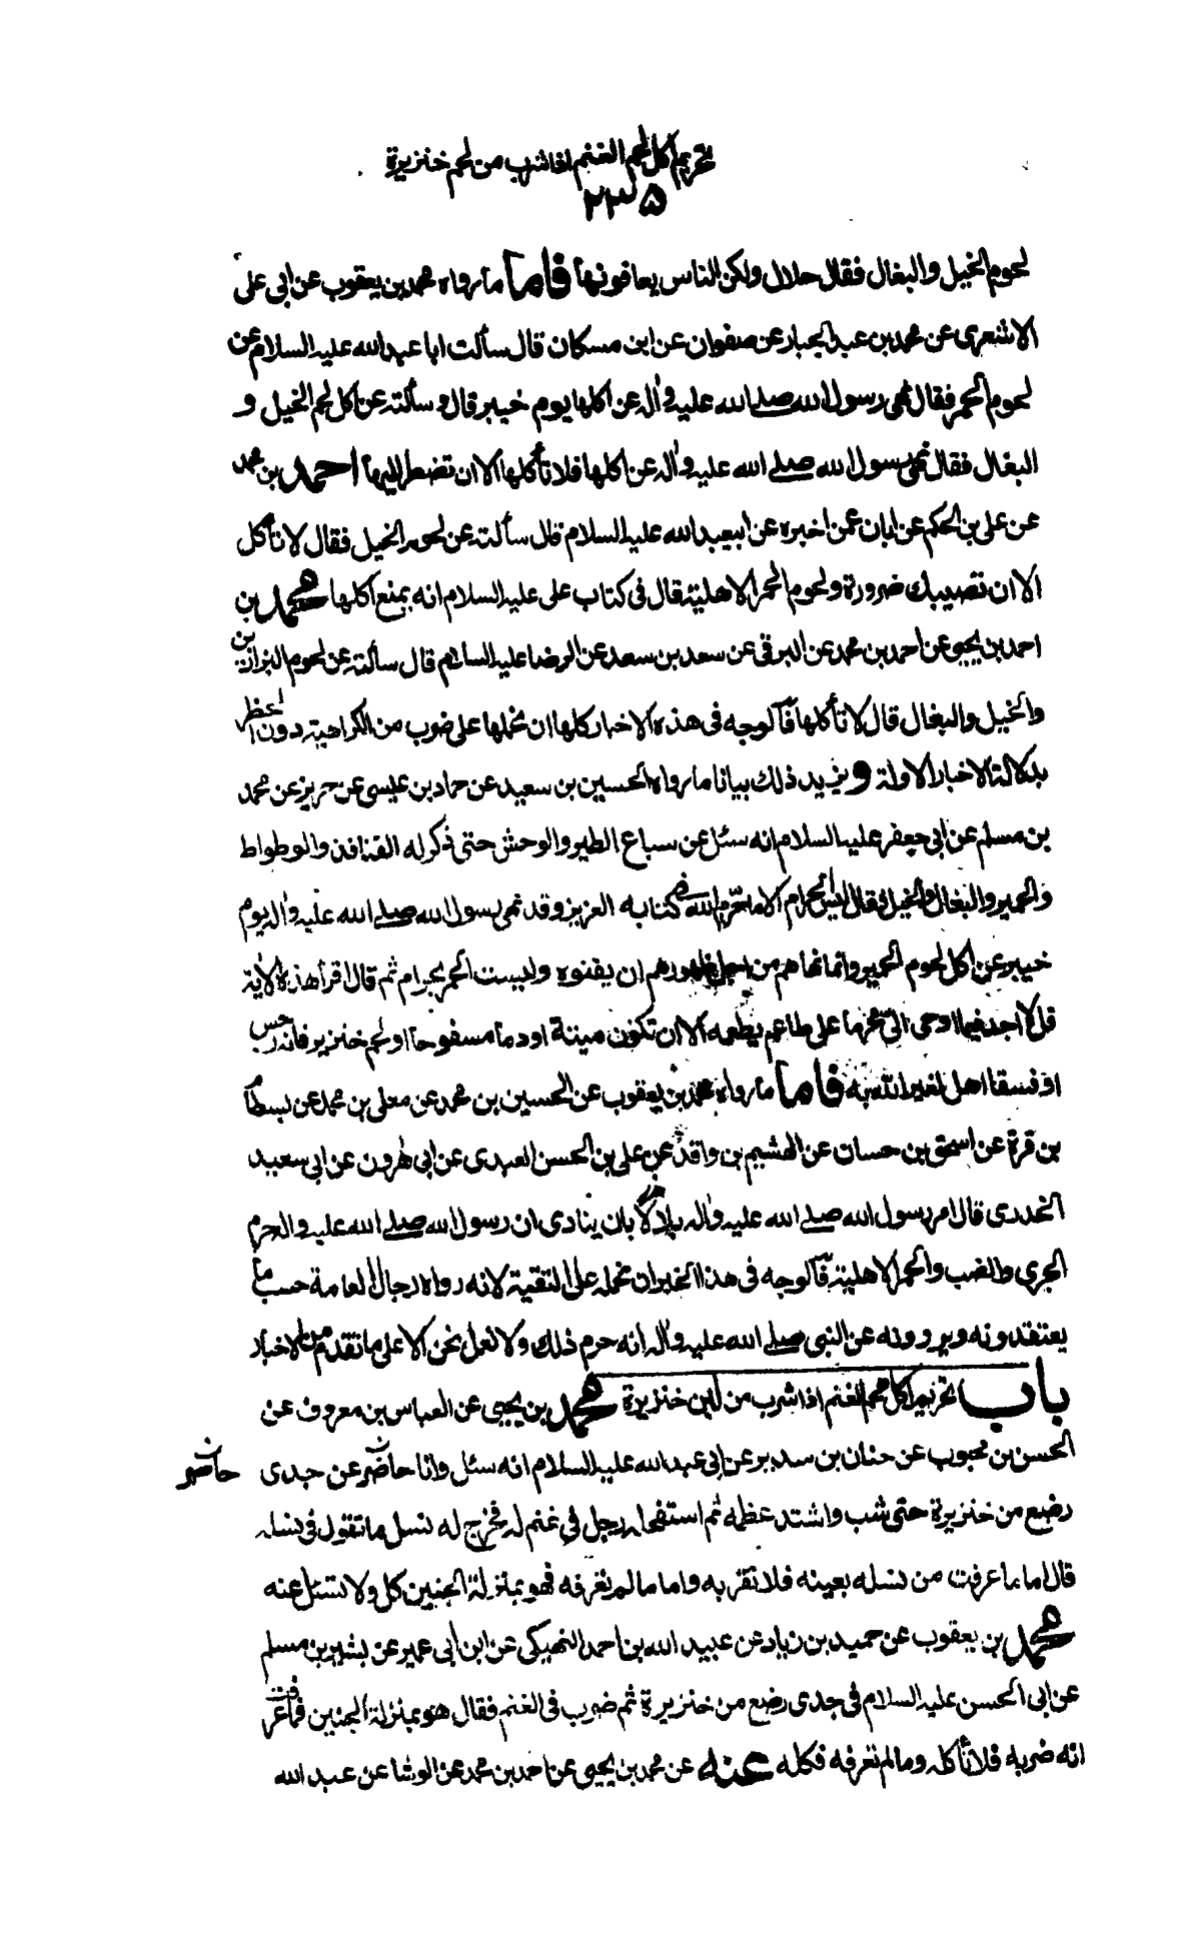 تحريم اكل لحم الغنم اذا شرب من لحم خنزيرة
٢٣٥
لحوم الخيل والبغال فقال حلال ولكن الناس يعافونها فاما ما رواه محمد بن يعقوب عن ابى على
الاشعرى عن محمد بن عبد الجبار عن صفوان عن ابن مسكان قال سألت ابا عبد الله عليه السلام عن
لحوم الحمر فقال نهى رسول الله صلى الله عليه واله عن اكلها يوم خيبر قال وسألته عن اكل لحم الخيل و
البغال فقال نهى رسول الله صلى الله عليه واله عن اكلها فلا تأكلها الا ان تضطر اليها احمد بن محمد
عن على بن الحكم عن ابان عمن اخبره عن ابيعبد الله عليه السلام قال سألته عن لحوم الخيل فقال لا تأكل
الا ان تصيبك ضرورة ولحوم الحمر الاهلية قال فى كتاب على عليه السلام انه يمنع اكلها محمد بن
احمد بن يحيى عن احمد بن محمد عن البرقى عن سعد بن سعد عن الرضا عليه السلام قال سألته عن لحوم البراذين
والخيل والبغال قال لا تأكلها فالوجه فى هذه الاخبار كلها ان نحملها على ضرب من الكراهية دون الحظر
بدلالة الاخبار الاولة ويزيد ذلك بيانا ما رواه الحسين بن سعيد عن حماد بن عيسى عن حريز عن محمد
بن مسلم عن ابى جعفر عليه السلام انه سئل عن سباع الطير والوحش حتى ذكر له القنافذ والوطواط
والحمير والبغال والخيل فقال ليس الحرام الا ما حرم الله فى كتابه العزيز وقد نهى رسول الله صلى الله عليه واله يوم
خيبر عن اكل لحوم الحمير وانما نهاهم من اجل ظهورهم ان يفنوه وليست الحمر بحرام ثم قال اقرأ هذه الاية
قل لا اجد فيما اوحى الى محرما على طاعم يطعمه الا ان تكون ميتة او دما مسفوحا او لحم خنزير فانه رجس
او فسقا اهل لغير الله به فاما ما رواه محمد بن يعقوب عن الحسين بن محمد عن معلى بن محمد عن بسطام
بن قرة عن اسحق بن حسان عن الهشيم بن واقد عن على بن الحسن العبدى عن ابى هرون عن ابى سعيد
الخدرى قال امر رسول الله صلى الله عليه واله بلالا بان ينادى ان رسول الله صلى الله عليه واله حرم
الجرى والضب والحمر الاهلية فالوجه فى هذا الخبر ان نحمله على التقية لانه رواه رجال العامة حسب ما
يعتقدونه ويروونه عن النبى صلى الله عليه واله انه حرم ذلك ولا نعمل نحن الا على ما تقدم من الاخبار
باب تحريم اكل لحم الغنم اذا شرب من لبن خنزيرة محمد بن يحيى عن العباس بن معروف عن
الحسن بن محبوب عن حنان بن سدير عن ابى عبد الله عليه السلام انه سئل وانا حاضر عن جدى
حاضر ن
رضع من خنزيرة حتى شب واشتد عظمه ثم استفحله رجل فى غنم له فخرج له نسل ما تقول فى نسله
قال اما ما عرفت من نسله بعينه فلا تقربه واما ما لم تعرفه فهو بمنزلة الجنبن كل ولا تسئل عنه
محمد بن يعقوب عن حميد بن زياد عن عبيد الله بن احمد النهيكى عن ابن ابى عمير عن بشير بن مسلم
عن ابى الحسن عليه السلام فى جدى رضع من خنزيرة ثم ضرب فى الغنم فقال هو بمنزلة الجبن فما عرفت
انه ضربه فلا تأكله وما لم تعرفه فكله عنه عن محمد بن يحيى عن احمد بن محمد عن الوشا عن عبد الله